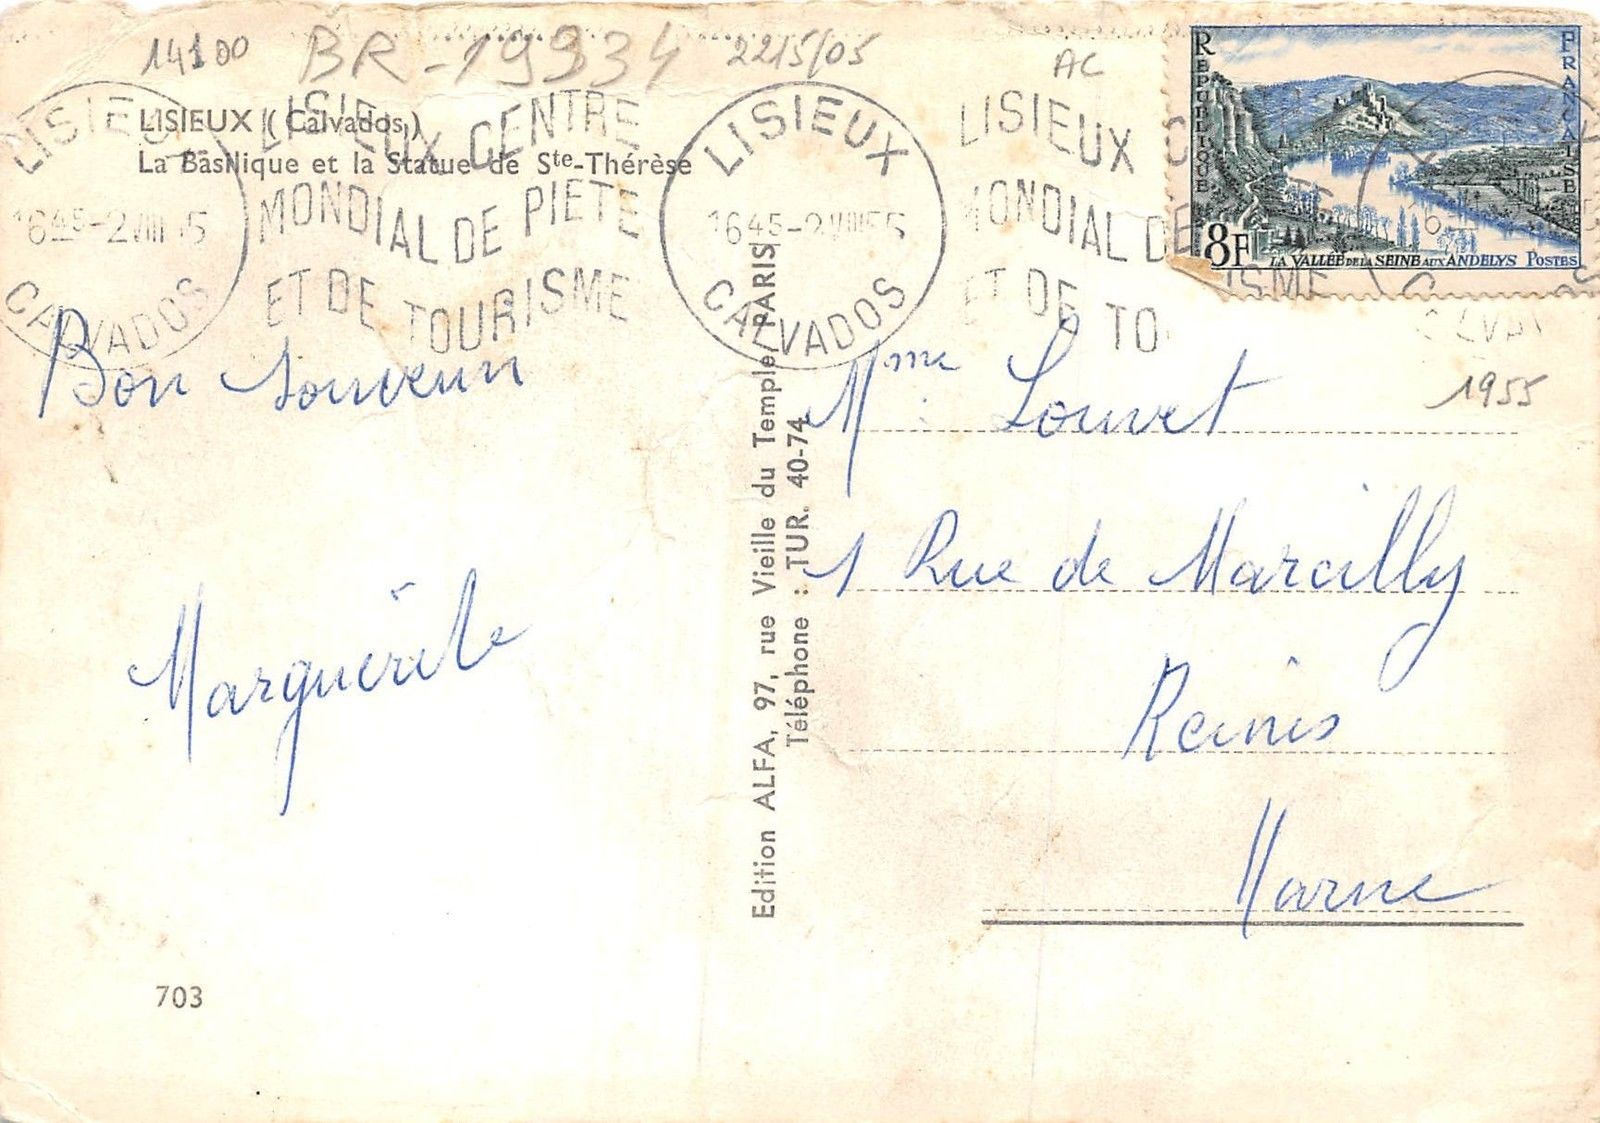 14100 BR-19934 2215/05 AC
LISIEUX (Calvados)
La Basilique et la Statue de Ste-Thérèse
LISIEUX
16 45 - 2 VIII 55
CALVADOS
LISIEUX CENTRE
MONDIAL DE PIETE
ET DE TOURISME
LISIEUX
16 45 - 2 VIII 55
CALVADOS
LISIEUX C
MONDIAL DE
ET DE TO ISME
REPUBLIQUE
FRANCAISE
8F
LA VALLÉE DE LA SEINE AUX ANDELYS POSTES
1955
Bon Souvenir
Marguerite
703
Edition ALFA, 97, rue Vieille du Temple, PARIS
Téléphone : TUR. 40-74
Mme Louvet
1 Rue de Marcilly
Reims
Marne